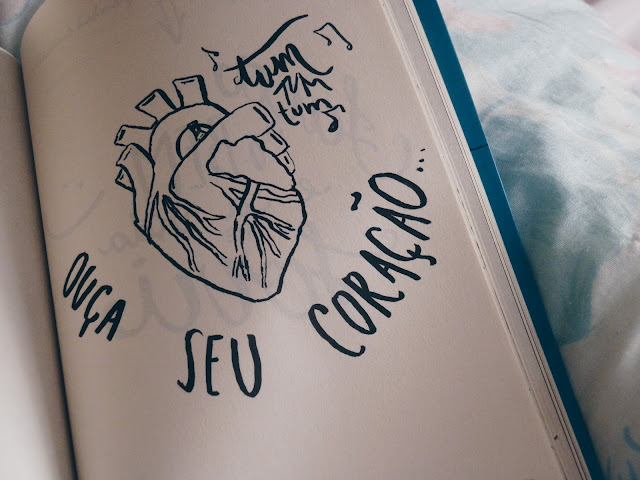 tum
tum
tum
OUÇA SEU CORAÇÃO...